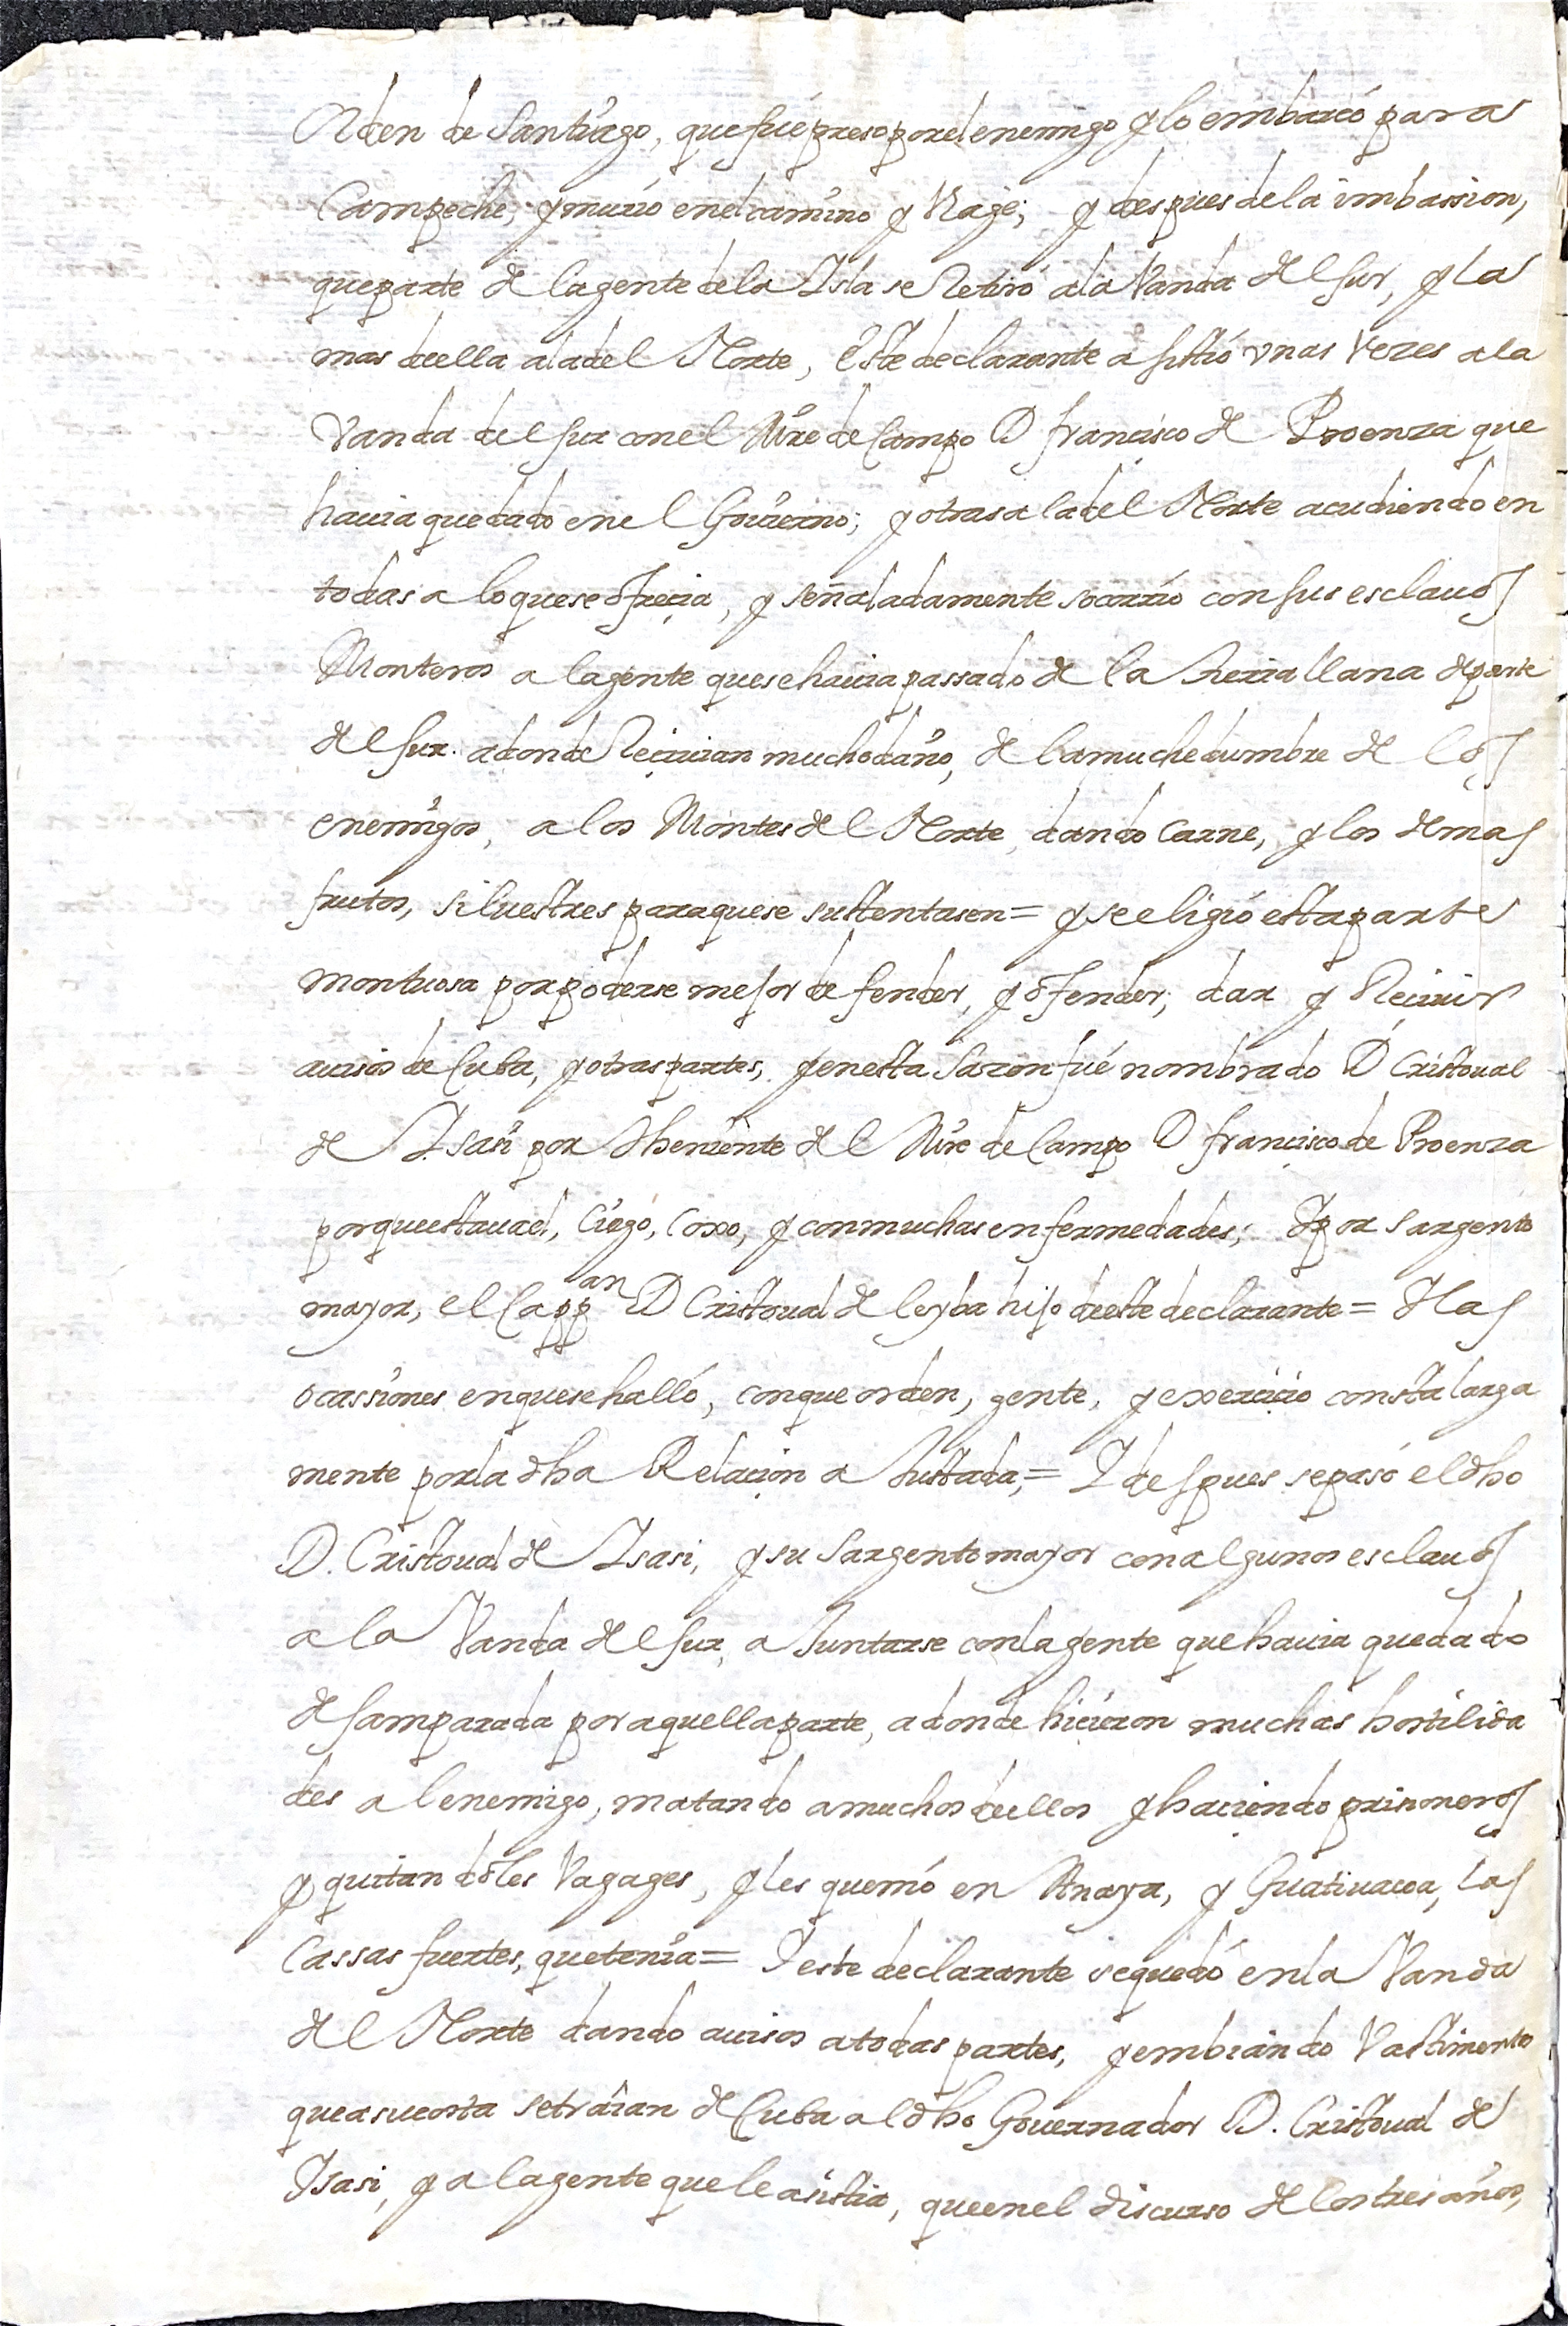 Orden de Santiago, que fué preso por el enemigo y lo embarcó para
Campeche, y murió en el camino y Viage; y despues de la imbassion,
que parte de la gente de la Isla se Retiró a la Vanda del Sur, y la
mas de ella a la del Norte, Este declarante asistió unas Vezes a la
Vanda del Sur con el Mře de Campo D francisco de Proenza que
hauia quedado en el Gouierno; y otras a la del Norte acudiendo en
todas a lo que se ofrecia, y señaladamente socorrió con sus esclauos
Monteros a la gente que se hauia passado de la tierra llana de parte
del Sur adonde Reciuian mucho daño, de la muchedumbre de los
enemigos, a los Montes del Norte, dando Carne, y los demas
frutos, siluestres para que se sustentasen = y se eligió esta parte
montuosa por poderse mejor defender, y ofender, dar y Reciuir
auisos de Cuba, y otras partes, y en esta Sazon fué nombrado D Cristoual
de Isasi por theniente del Mře de Campo D francisco de Proenza
porque estaua el, Ciego, Coxo, y con muchas enfermedades; Y por Sargento
mayor, el Capp.an D Cristoual de leyba hijo de este declarante = Y las
ocassiones en que se halló, con que orden, gente, y exercicio consta larga
mente por la dha Relacion a Justada, = Y despues se pasó el dho
D. Cristoual de Isasi, y su Sargento mayor con algunos esclauos
a la Vanda del Sur, a Juntarse con la gente que hauia quedado
desamparada por aquella parte, adonde hicieron muchas hostilida
des al enemigo, matando a muchos de ellos y haciendo prisioneros
y quitandoles Vagages, y les quemó en Anaya, y Guatiuacoa, las
Cassas fuertes, que tenia = Y este declarante se quedó en la Vanda
del Norte dando auisos a todas partes, y embiando Vastimento
que a su costa se traian de Cuba al dho Gouernador D. Cristoual de
Isasi, y a la gente que le asistia, que en el discurso de los tres años,